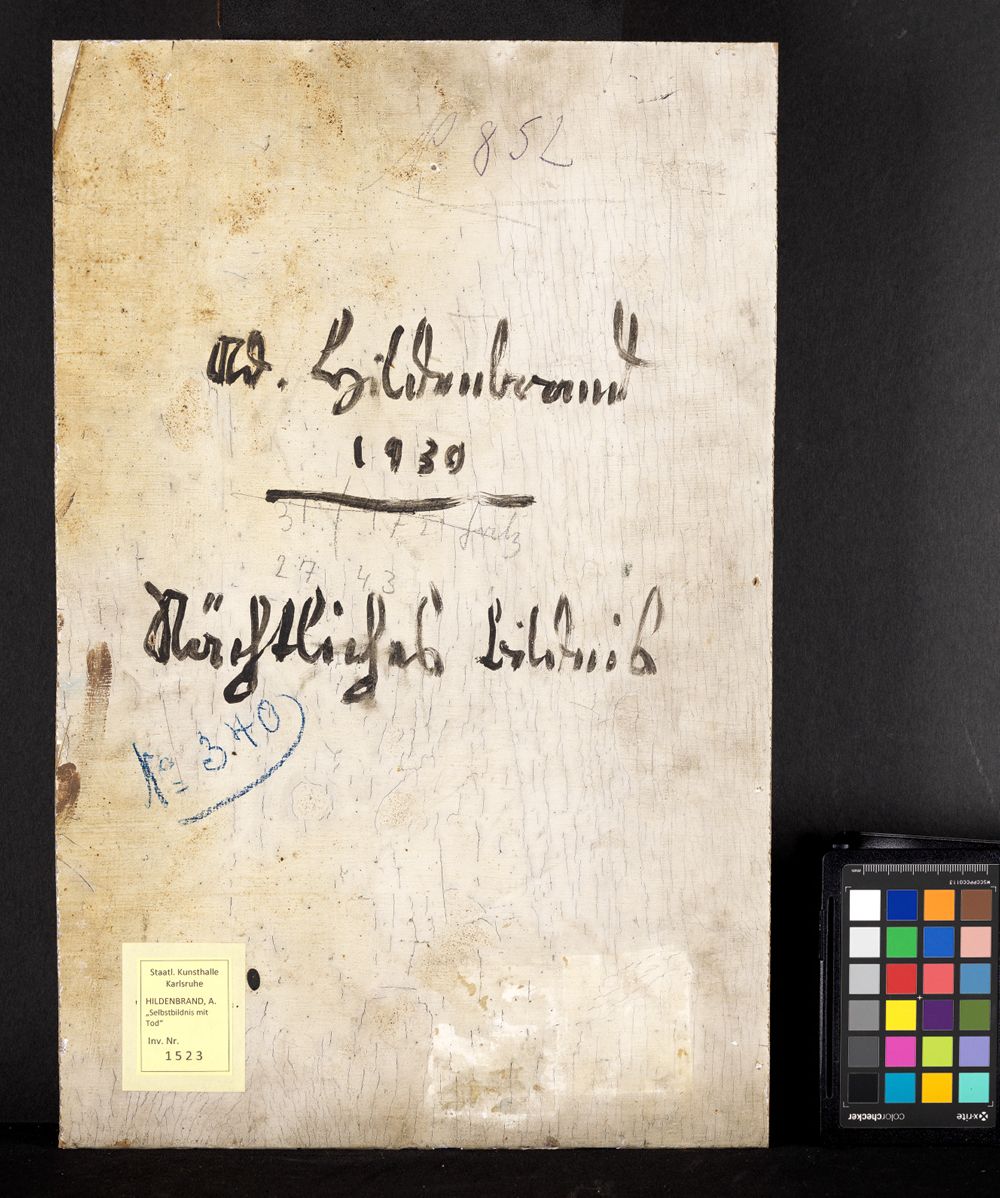 852
Ad. Hildenbrand
1930
27 43
Nächtliches Bildnis
No 340
Staatl. Kunsthalle
Karlsruhe
HILDENBRAND, A.
„Selbstbildnis mit
Tod“
Inv. Nr.
1523
mm
MSCCPPCC0113
x-rite
colorchecker